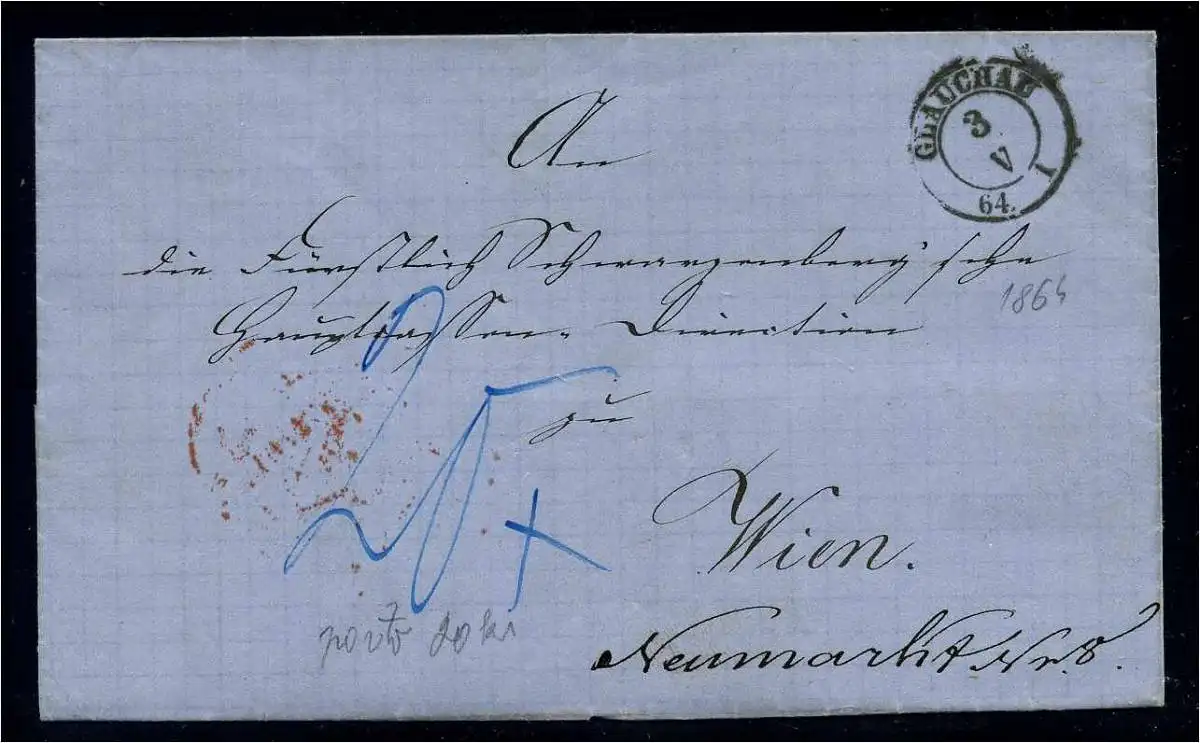 GLAUCHAU
3
V
1
64.
An
die Fürstlich Schwarzenberg'sche
1864
Hauptcassen-Direction
zu
20 x
Wien.
porto 20 kr
Neumarkt Nr. 8.